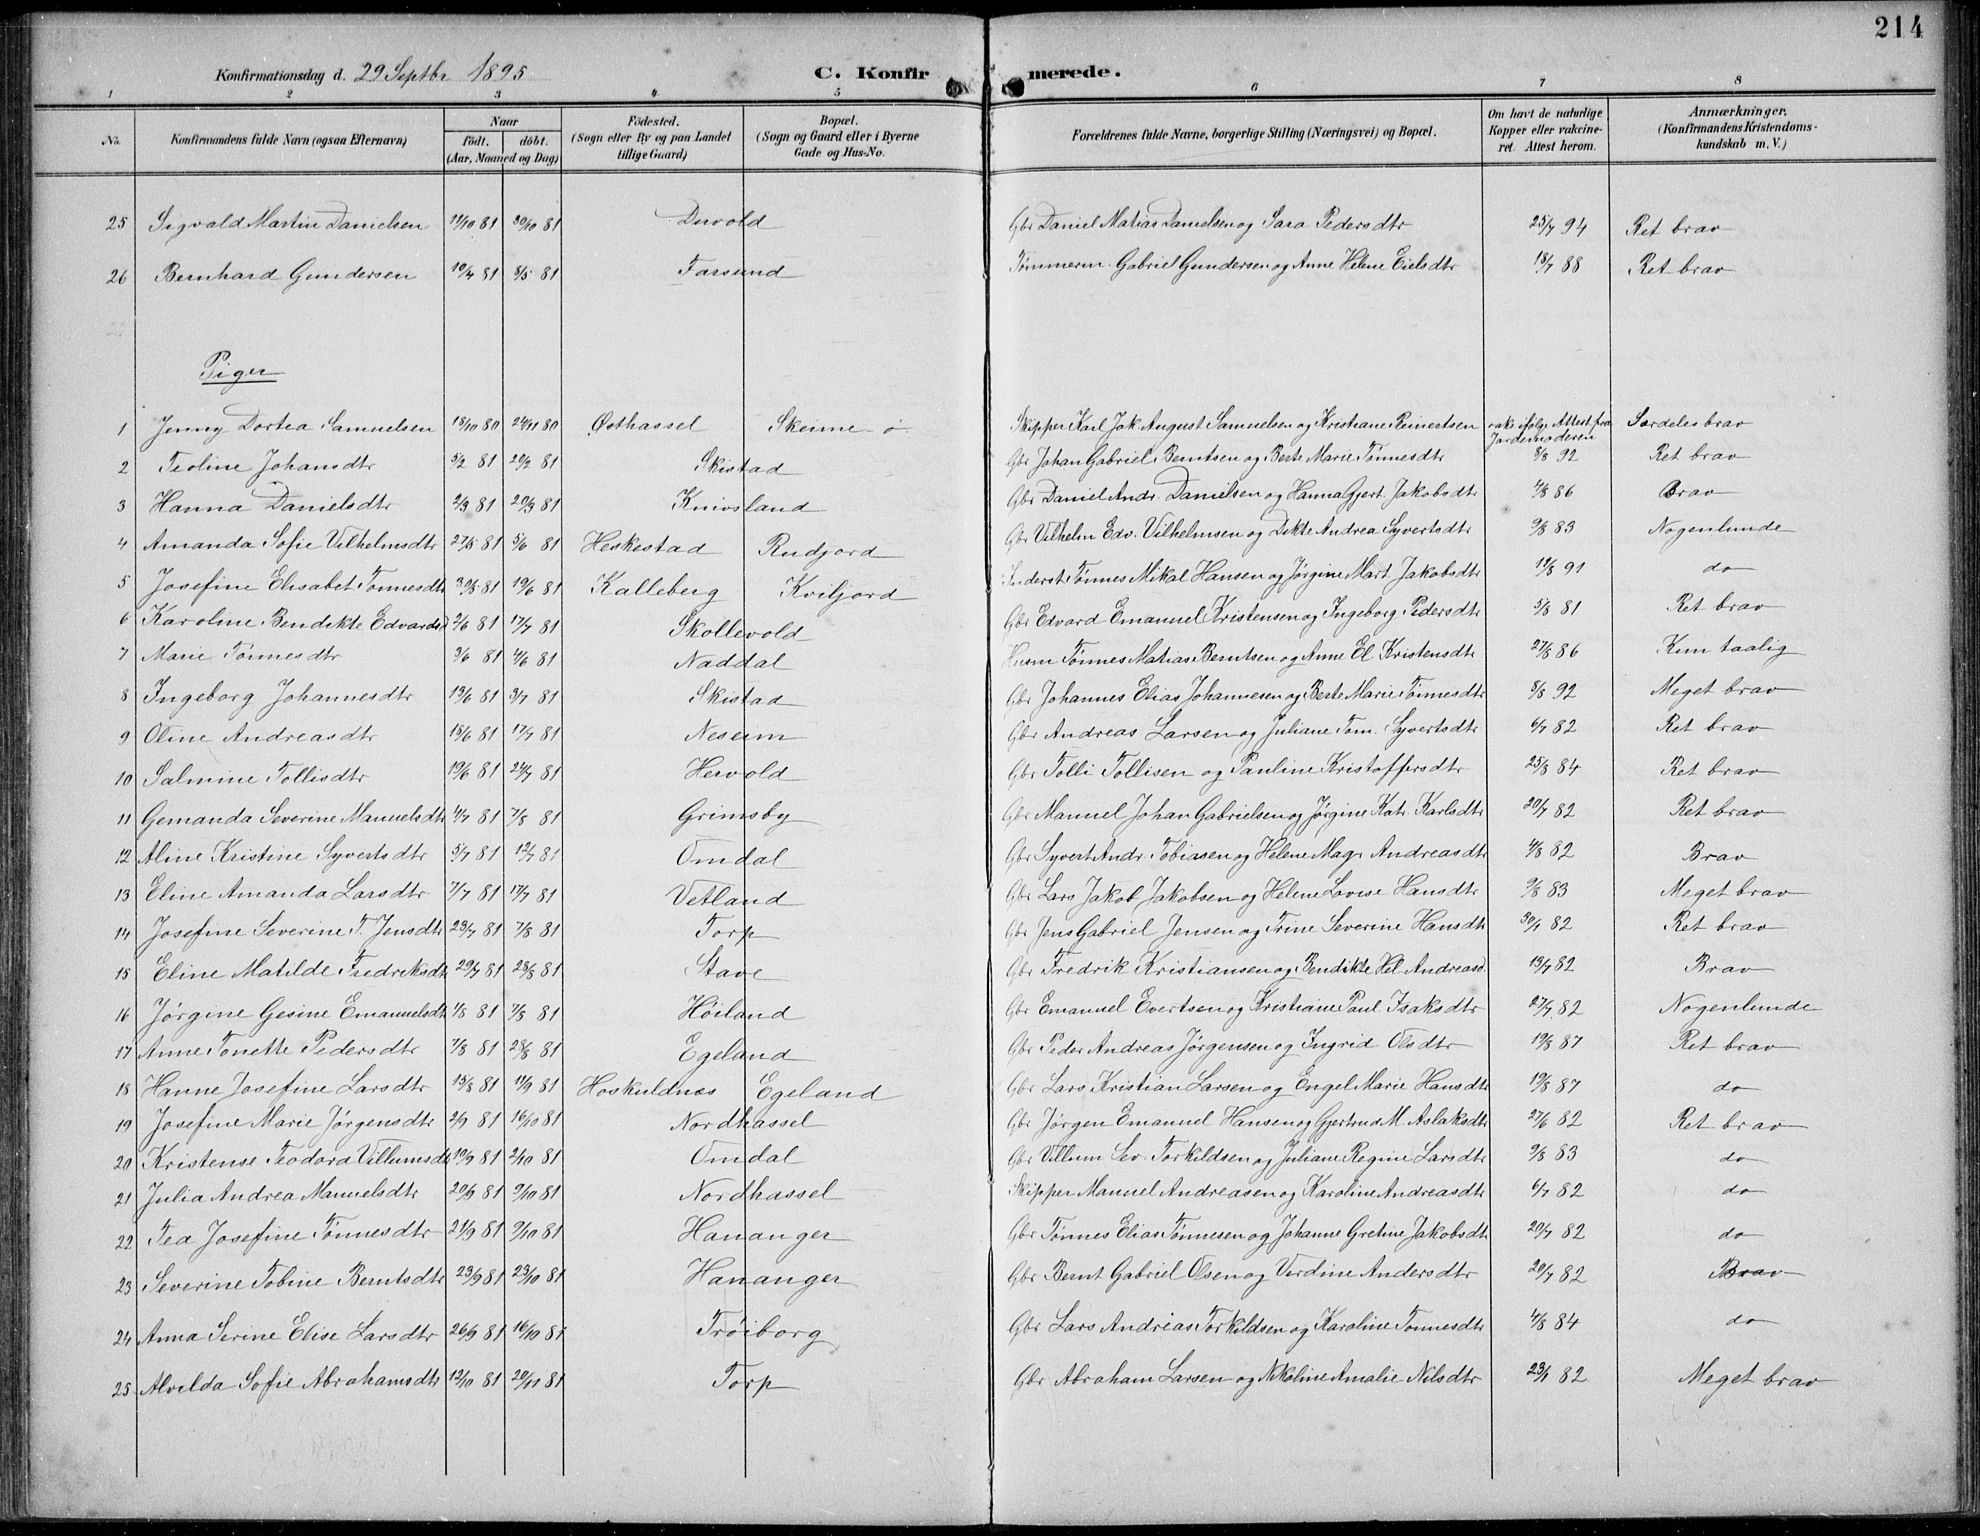 214
Konfirmationsdag d. 29 Septbr 1895 C. Konfirmerede.
1 2 3 4 5 6 7 8
No. Konfirmandens fulde Navn (ogsaa Efternavn) Naar födt. döbt. (Aar, Maaned og Dag) Födested. (Sogn eller By og paa Landet tillige Gaard) Bopæl. (Sogn og Gaard eller i Byerne Gade og Hus-No. Forældrenes fulde Navne, borgerlige Stilling (Næringsvei) og Bopæl. Om havt de naturlige Kopper eller vakcineret. Attest herom. Anmærkninger. (Konfirmandens Kristendomskundskab m. V.)
25 Sigvald Martin Danielsen 11/10 81 30/10 81 Duvold Gbr Daniel Matias Danielsen og Sara Pedersdtr 25/7 94 Ret brav
26 Bernhard Gundersen 10/4 81 8/5 81 Farsund Tømmerm. Gabriel Gundersen og Anne Helene Eielsdtr 18/7 88 Ret brav
Piger
1 Jenny Dortea Samuelsen 18/10 80 21/11 80 Østhassel Skeime ø. Skipper Karl Jak. August Samuelsen og Kristiane Reinertsen vaks. ifølge Attest fra Jordemoderen Særdeles brav
2 Teoline Johansdtr 5/2 81 20/2 81 Skistad Gbr Johan Gabriel Berntsen og Berte Marie Tønnesdtr 8/8 92 Ret brav
3 Hanna Danielsdtr 2/3 81 20/3 81 Knivsland Gbr Daniel Andr. Danielsen og Hanna Gjert. Jakobsdtr 4/8 86 Brav
4 Amanda Sofie Vilhelmsdtr 27/5 81 5/6 81 Heskestad Rudjord Gbr Vilhelm Edv. Vilhelmsen og Dikte Andrea Syvertsdtr 9/8 83 Nogenlunde
5 Josefine Elisabet Tønnesdtr 30/5 81 19/6 81 Kalleberg Kviljord Inderst Tønnes Mikal Hansen og Jørgine Mart. Jakobsdtr 11/8 91 do
6 Karoline Bendikte Edvardsd 2/6 81 17/7 81 Skollevold Gbr Edvard Emanuel Kristensen og Ingeborg Pedersdtr 5/8 81 Ret brav
7 Marie Tønnesdtr 3/6 81 4/6 81 Naddal Husm Tønnes Matias Berntsen og Anne El. Kristensdtr 27/8 86 Kun taalig
8 Ingeborg Johannesdtr 13/6 81 3/7 81 Skistad Gbr Johannes Elias Johannesen og Berte Marie Tønnesdtr 8/8 92 Meget brav
9 Oline Andreasdtr 18/6 81 17/7 81 Neseim Gbr Andreas Larsen og Juliane Tom. Syvertsdtr 6/7 82 Ret brav
10 Salmine Tollisdtr 19/6 81 24/7 81 Hervold Gbr Tolli Tollisen og Pauline Kristoffersdtr 25/8 84 Ret brav
11 Gemanda Severine Manuelsdtr 4/7 81 7/8 81 Grimsby Gbr Manuel Johan Gabrielsen og Jørgine Katr. Karlsdtr 20/7 82 Ret brav
12 Aline Kristine Syvertsdtr 5/7 81 12/7 81 Omdal Gbr Syvert Andr. Tobiasen og Helene Magr. Andreasdtr 4/8 82 Brav
13 Eline Amanda Larsdtr 7/7 81 17/7 81 Vetland Gbr Lars Jakob Jakobsen og Helene Lovise Hansdtr 9/8 83 Meget brav
14 Josefine Severine T. Jensdtr 23/7 81 7/8 81 Torp Gbr Jens Gabriel Jensen og Trine Severine Hansdtr 30/7 82 Ret brav
15 Eline Matilde Fredriksdtr 29/7 81 28/8 81 Stave Gbr Fredrik Kristiansen og Bendikte Hel. Andreasd. 13/7 82 Brav
16 Jørgine Gesine Emanuelsdtr 1/8 81 7/8 81 Høiland Gbr Emanuel Evertsen og Kristiane Paul. Isaksdtr 27/7 82 Nogenlunde
17 Anne Tonette Pedersdtr 7/8 81 28/8 81 Egeland Gbr Peder Andreas Jørgensen og Ingrid Olsdtr 19/8 87 Ret brav
18 Hanne Josefine Larsdtr 15/8 81 11/9 81 Hoskuldnes Egeland Gbr Lars Kristian Larsen og Engel Marie Hansdtr 19/8 87 do
19 Josefine Marie Jørgensdtr 2/9 81 16/10 81 Nordhassel Gbr Jørgen Emanuel Hansen og Gjertrud M. Aslaksdtr 27/6 82 Ret brav
20 Kristense Teodora Villumsdtr 19/9 81 2/10 81 Omdal Gbr Villum Sev. Torkildsen og Juliane Regine Larsdtr 9/8 83 do
21 Julia Andrea Manuelsdtr 20/9 81 9/10 81 Nordhassel Skipper Manuel Andreasen og Karoline Andreasdtr 6/7 82 do
22 Tea Josefine Tønnesdtr 21/9 81 9/10 81 Hananger Gbr Tønnes Elias Tønnesen og Johanne Gretine Jakobsdtr 20/7 82 do
23 Severine Tobine Berntsdtr 23/9 81 23/10 81 Hananger Gbr Bernt Gabriel Olsen og Verdine Andersdtr 20/7 82 Brav
24 Anna Serine Elise Larsdtr 26/9 81 16/10 81 Trøiborg Gbr Lars Andreas Torkildsen og Karoline Tønnesdtr 4/8 84 do
25 Alvilda Sofie Abrahamsdtr 12/10 81 20/11 81 Torp Gbr Abraham Larsen og Nikoline Amalie Nilsdtr 23/7 82 Meget brav